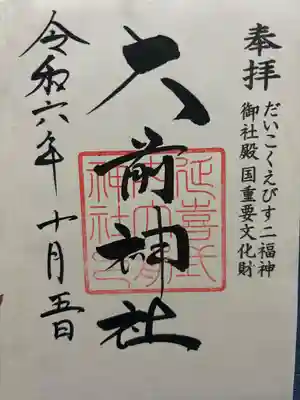 奉拝
だいこくえびす二福神
御社殿国重要文化財
大前神社
延喜式
内大前
神社
令和六年十月五日